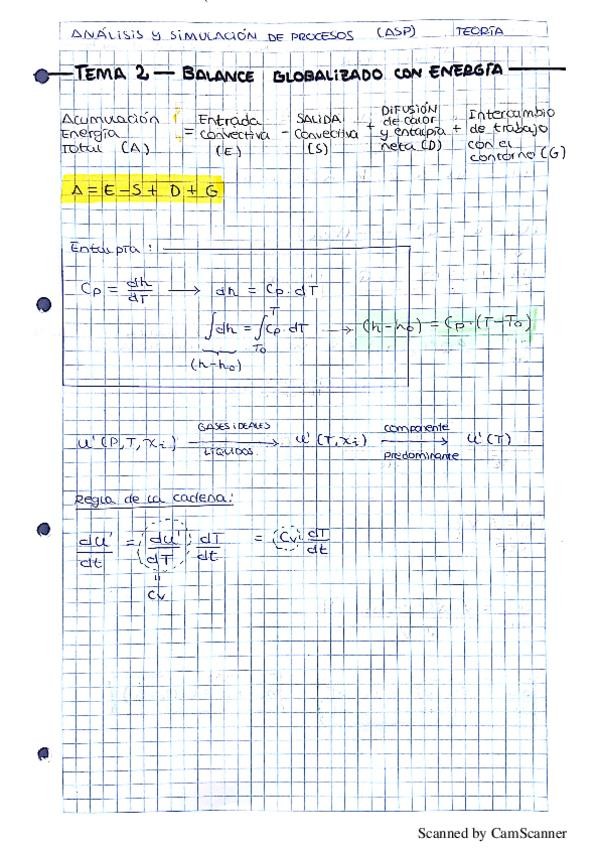 ANÁLISIS Y SIMULACIÓN DE PROCESOS (ASP) TEORÍA
TEMA 2 — BALANCE GLOBALIZADO CON ENERGÍA
Acumulación Energía Total (A) = Entrada convectiva (E) - SALIDA Convectiva (S) + DIFUSIÓN de calor y entalpía neta (D) + Intercambio de trabajo con el contorno (G)
A = E - S + D + G
Entalpía:
Cp = dh/dT → dh = Cp · dT
∫dh = ∫_{T0}^{T} Cp · dT → (h-h0) = Cp · (T-T0)
(h-h0)
u'(P,T,xi) GASES IDEALES LÍQUIDOS → u'(T,xi) componente predominante → u'(T)
Regla de la cadena:
du'/dt = du'/dT · dT/dt = Cv · dT/dt
=
Cv
Scanned by CamScanner